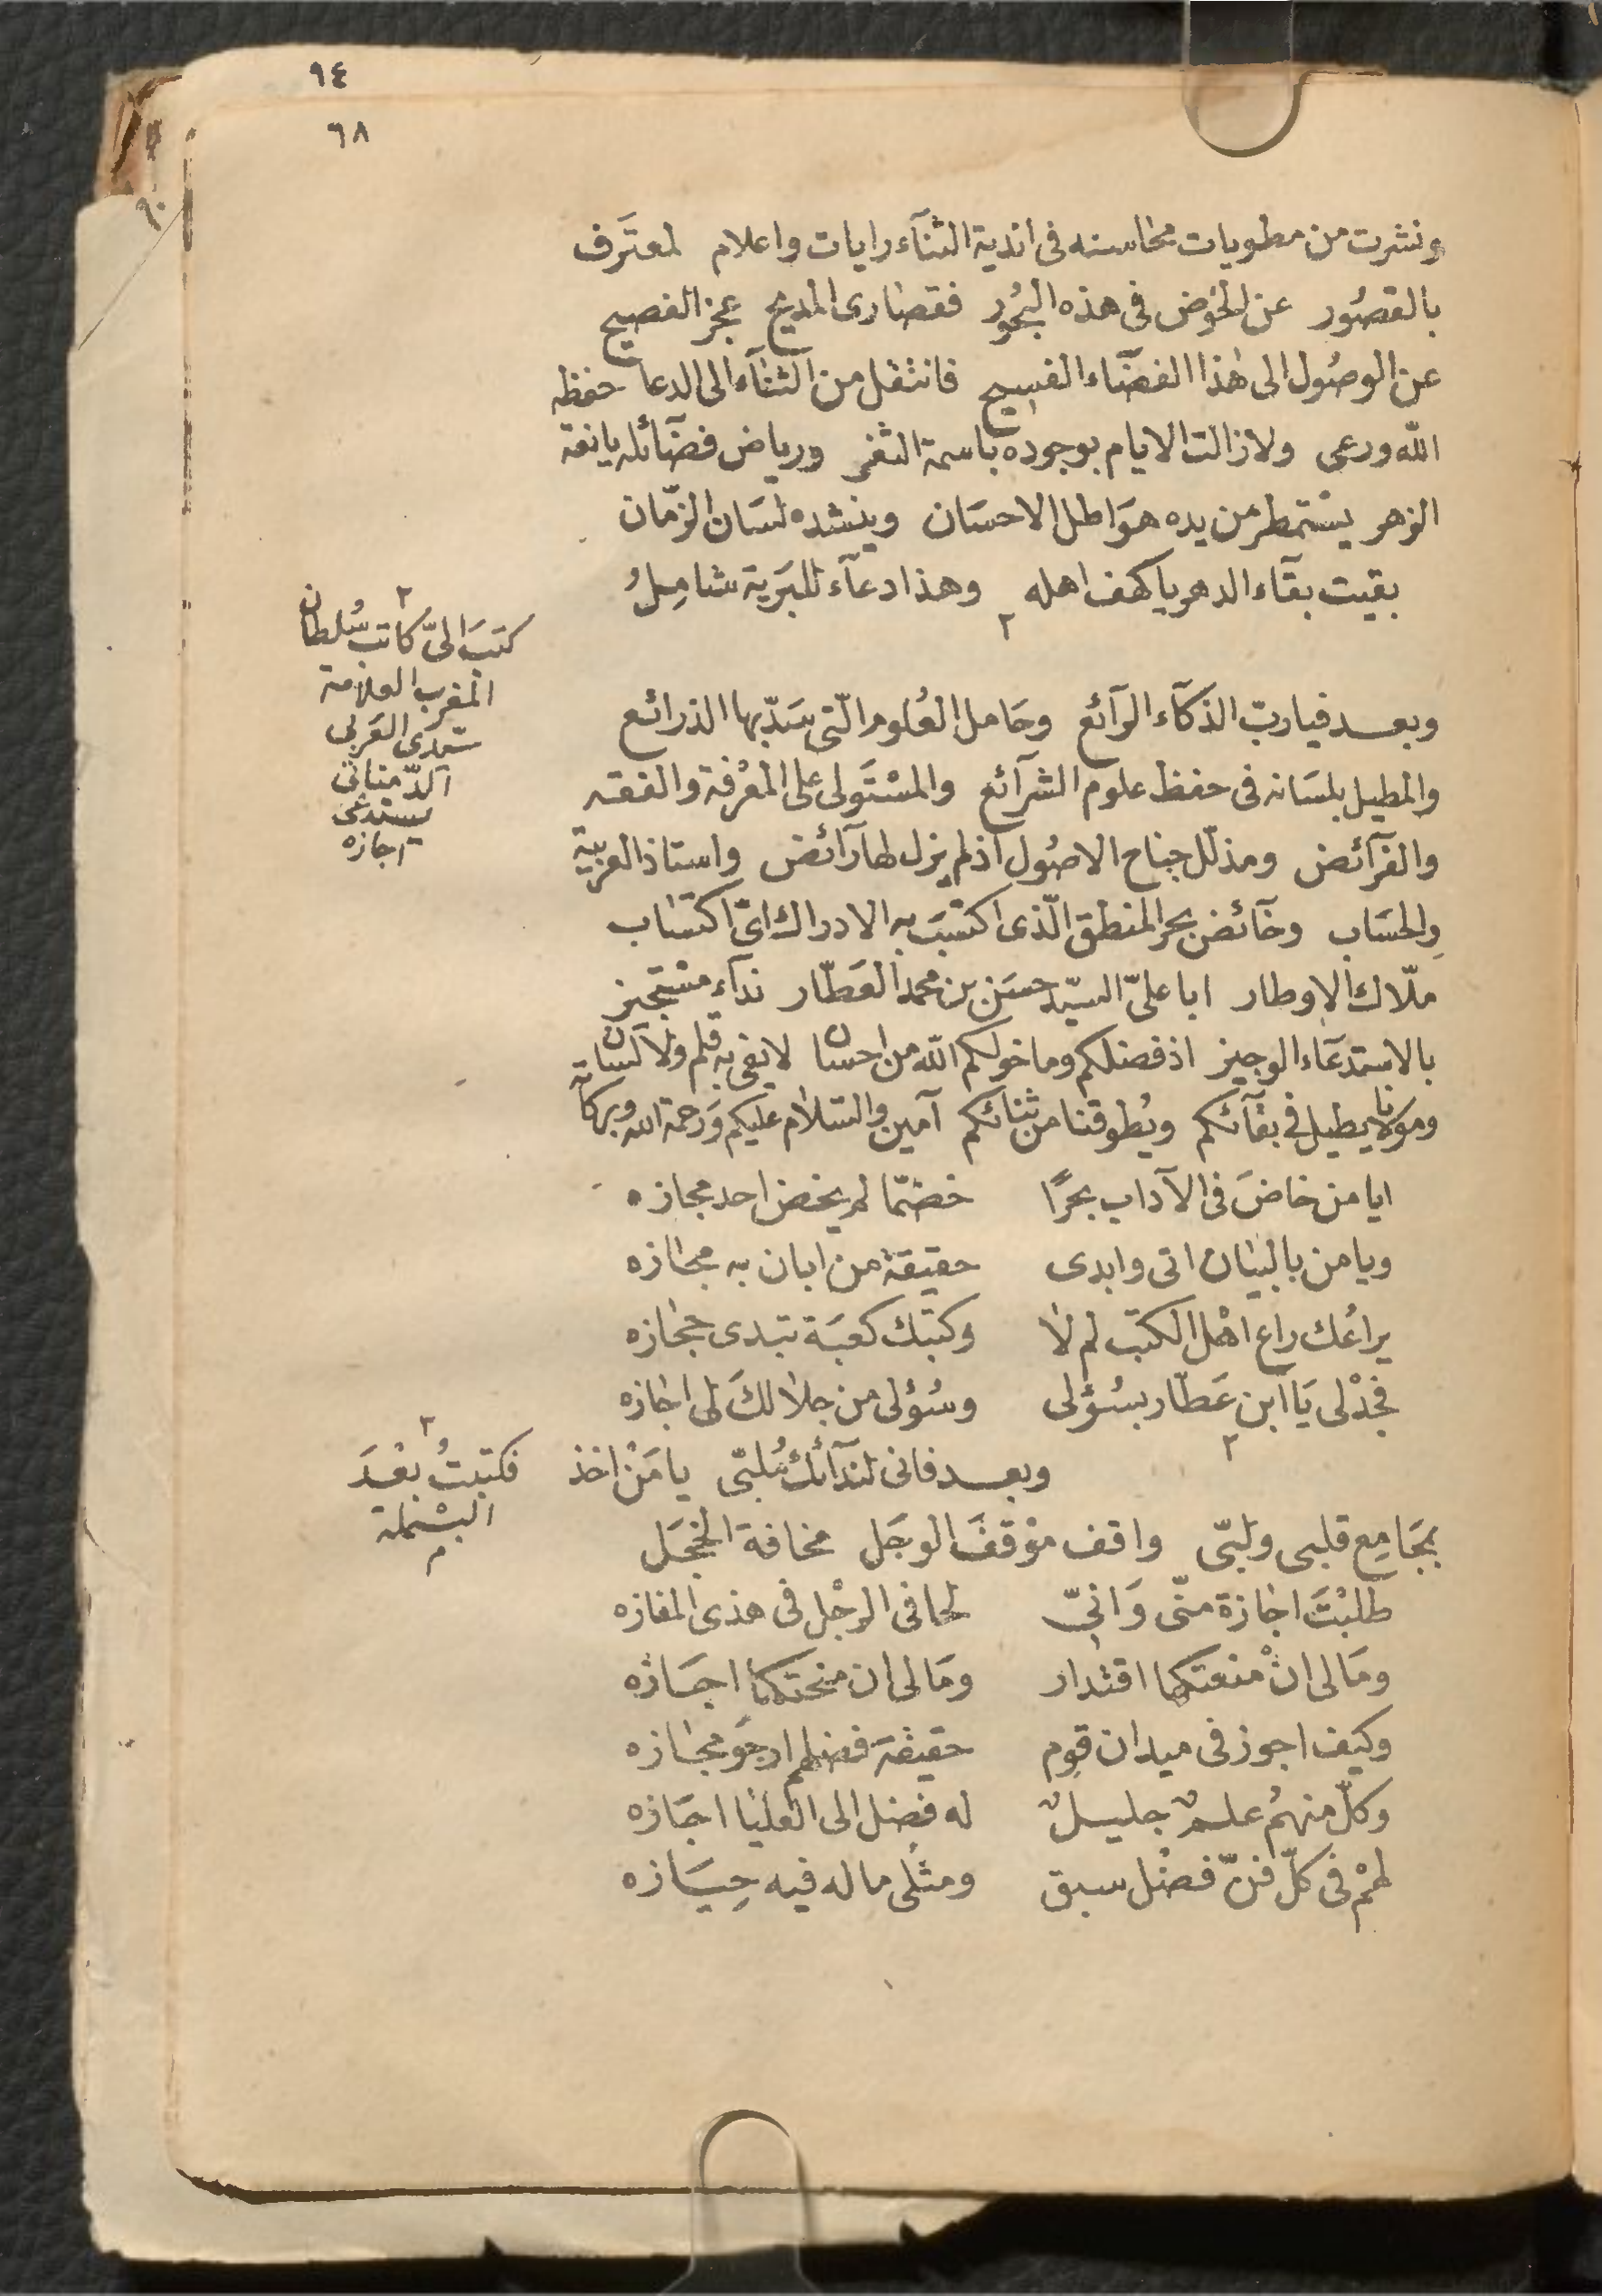 ٩٤
٦٨
٩٠
ونشرت من مطويات محاسنه فى اندية الثنآء رايات واعلام لمعترف
بالقصُور عن الخوض فى هذه البحُور فقصارى المديح عجز الفصيح
عن الوصُول الى هٰذا الفضآء الفسيح فانتقل من الثنآء الى الدعا حفظه
اللّه ورعى ولازالت الايام بوجوده باسمة الثغر ورياض فضآئله يانعة
الزهر يسْتمطر من يده هوَاطل الاحسَان وينشده لسَان الزّمان
بقيت بقآء الدهر يا كهف اهله وهذا دعآء للبرَية شامِلُ
كتبَ الىّ كاتب سُلطان
المغرب العلامة
سَيدى العَربى
الدّمناتى
يستدعى
اجازه
وبعد فيا ربّ الذكآء الرآئع وحَامل العُلوم الّتى سَدّ بها الذرائع
والمطيل بلسَانه فى حفظ علوم الشرآئع والمسْتَولى على المعْرفة والفقه
والفرآئض ومذلّل جناح الاصُول اذ لم يزل لها رآئض واستاذ العربيّة
والحسَاب وخآئض بحر المنطق الّذى اكتسَبَ به الادراك اىّ اكتسَاب
ملّاك الاوطار ابا علىّ السيّد حسَن بن محمد العَطّار ندآء مسْتجيز
بالاستدعَاء الوجيز اذ فضلكم وما خولكم اللّه من احسان لا يفى به قلم ولا لسَان
ومَولانا يطيل فى بقآئكم ويُطوقنا من ثنائكم آمين والسّلام عليكم وَرحمة الله وبركاته
ايا من خاضَ فى الآداب بحرًا خضمّا لم يخض احد مجازه
ويا من بالبيَان اتى وابدى حقيقة من ابان به مجازه
يراعُك راع اهْل الكتب لم لا وكتبك كعبَة تبدى حجازه
فجدْ لى يَا ابن عَطّار بسُؤلى وسُؤلى من جلالكَ لى اجازه
وبعد فانى لندآئك مُلبّى يا مَنْ اخذ
فكتبتُ بعْدَ
البسْملة
بمجَامِع قلبى ولبّى واقف موْقفَ الوجَل مخافة الخجَل
طلبْتَ اجازة منّى وَانىّ لحافى الرجْل فى هذى المفازه
ومَا لى انْ منعتكها اقتدار ومَا لى ان منحتكها اجسَازه
وكيف اجوز فى ميدان قوم حقيقة فضلهم ارجو مجازه
وكلّ منهمُ علمٌ جليلٌ له فضل الى العليَا اجَازه
لهمْ فى كلّ فنّ فضْل سبق ومثلى ما له فيه حِيَازه